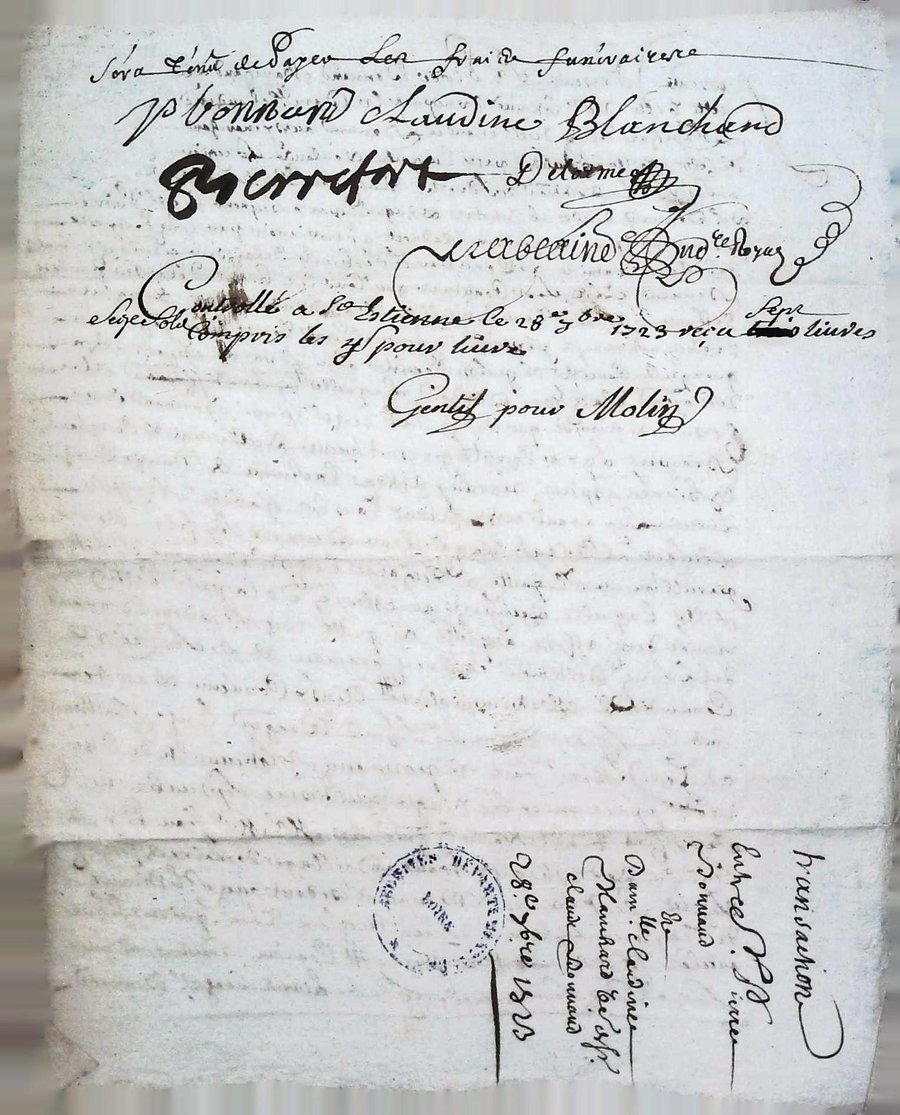 sera tenu de Payer Les fraits funeraires
P bonnand Claudine Blanchand
Pierrefort Delorme
not.re Royal
Controllé a St Estienne le 28e 7bre 1723 reçu Sept livres
Seize Sols Compris les 4s pour livre
Gentil pour Molin
transaction
Entre Sr Pierre
Bonnand
Et
Dam.lle Claudine
Blanchard
claude Bonnand
28e 7bre 1723
ARCHIVES DEPARTEMENTALES
LOIRE